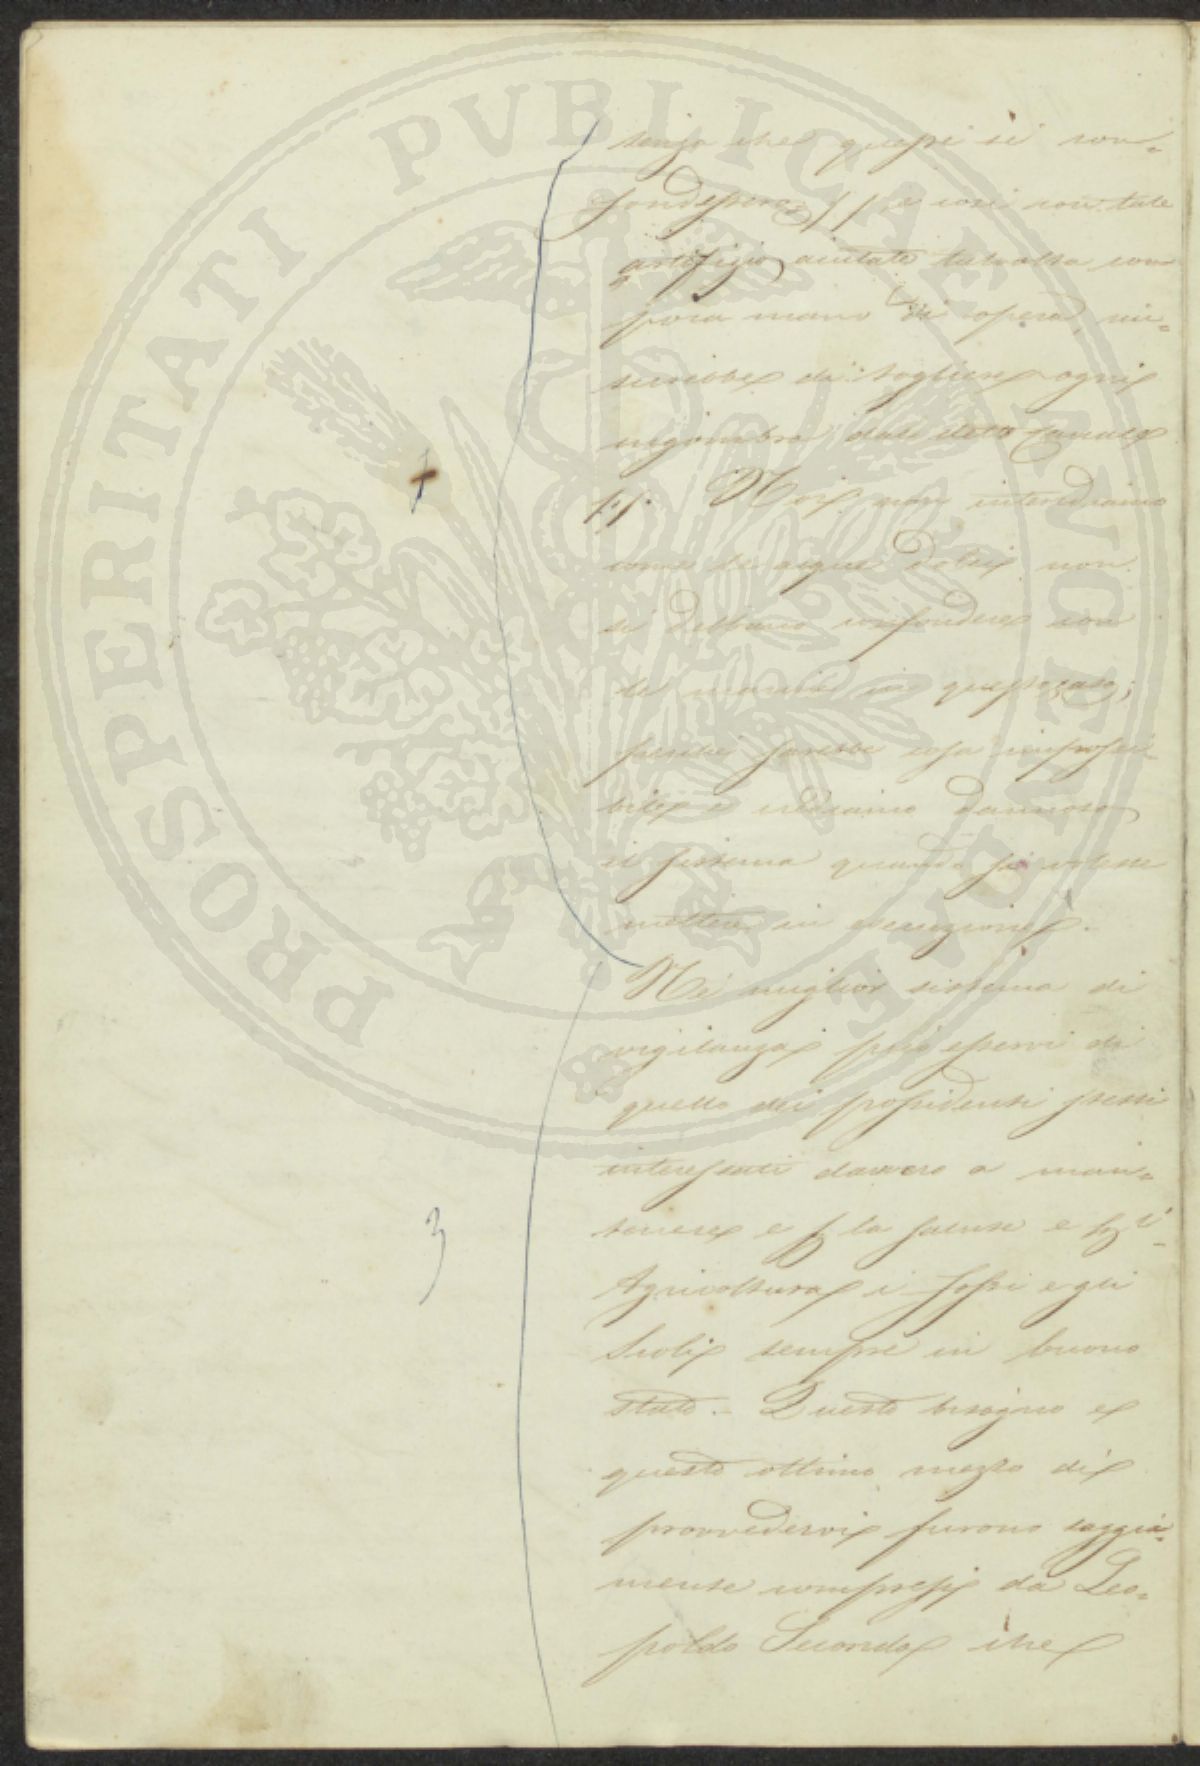 PROSPERITATI PVBLICAE AVGENDAE
senza che queste si con=
fondessero; // e così con tale
artifizio aiutato talvolta con
poca mano di opera, riu=
scirebbe di togliere ogni
ingombro dal detto Canale
//. Noi non intendiamo
come le acque dolci non
si debbano confondere con
le marine in questo caso;
perché sarebbe cosa impossi=
bile e crediamo dannoso
il sistema quando si volesse
mettere in esecuzione.
Né miglior sistema di
vigilanza può esservi di
quello dei possidenti stessi
interessati davvero a man=
tenere e p la salute e p l'=
3
Agricoltura i fossi e gli
Scoli sempre in buono
stato. - Questo bisogno e
questo ottimo mezzo di
provvedervi furono saggia=
mente compresi da Leo=
poldo Secondo che